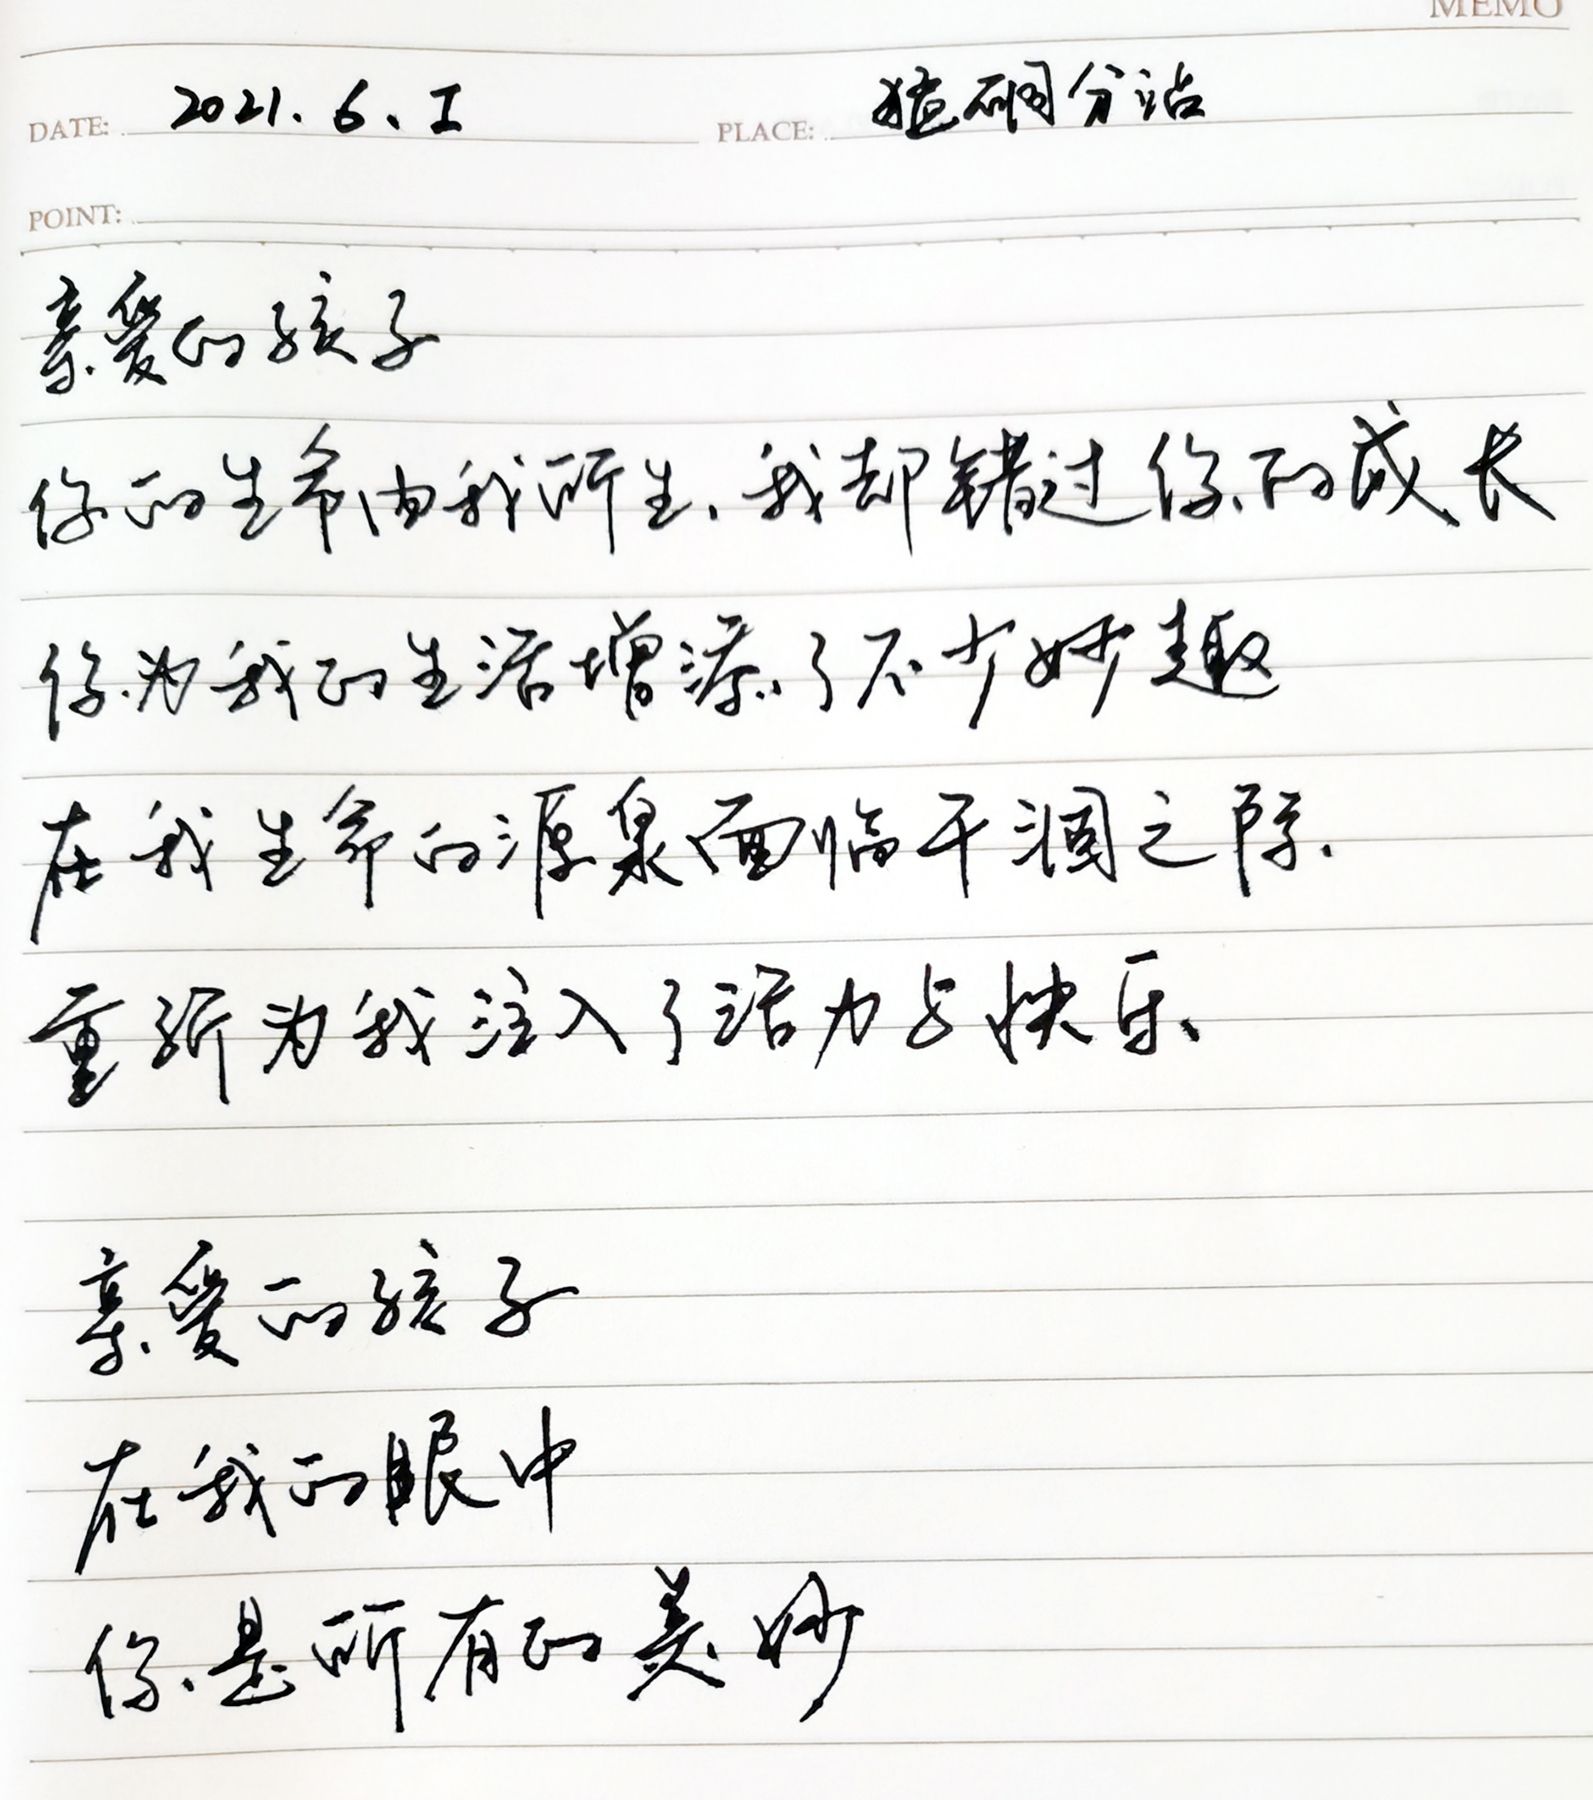 MEMO
DATE: 2021.6.1 PLACE: 猛硐分站
POINT:
亲爱的孩子
你的生命由我所生、我却错过你的成长
你为我的生活增添了不少妙趣
在我生命的源泉面临干涸之际、
重新为我注入了活力与快乐
亲爱的孩子
在我的眼中
你是所有的美妙